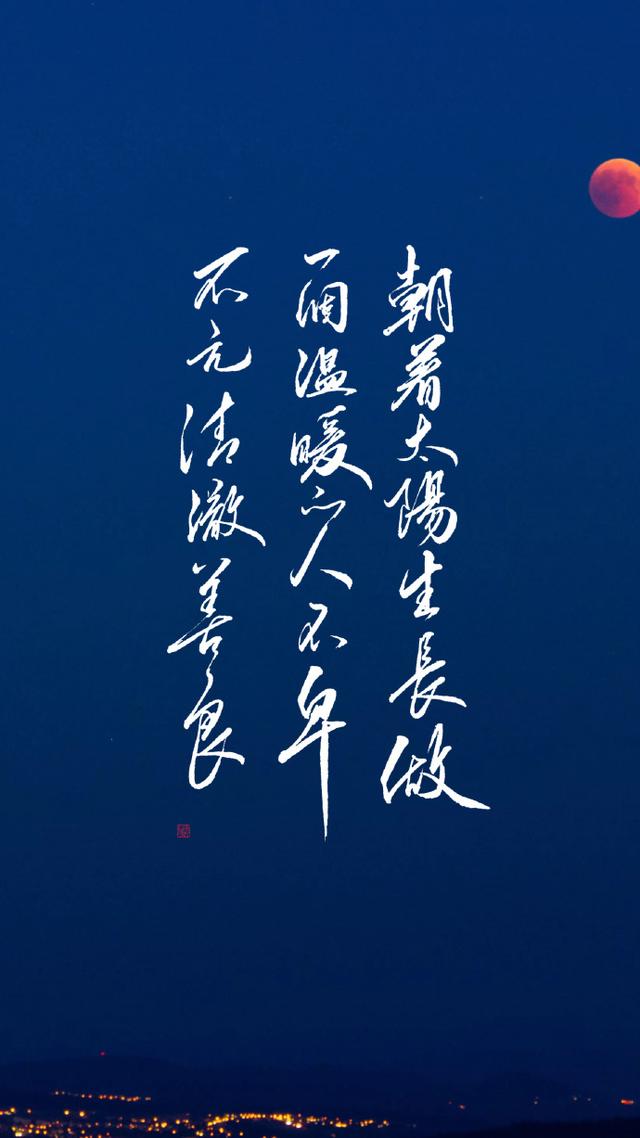 朝着太陽生長做
一個温暖的人不卑
不亢清澈善良